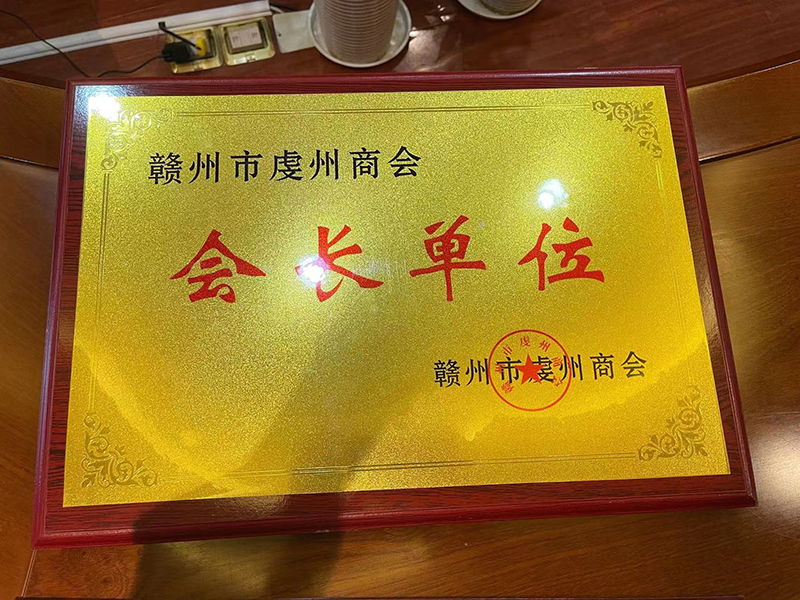 赣州市虔州商会
会长单位
赣州市虔州商会